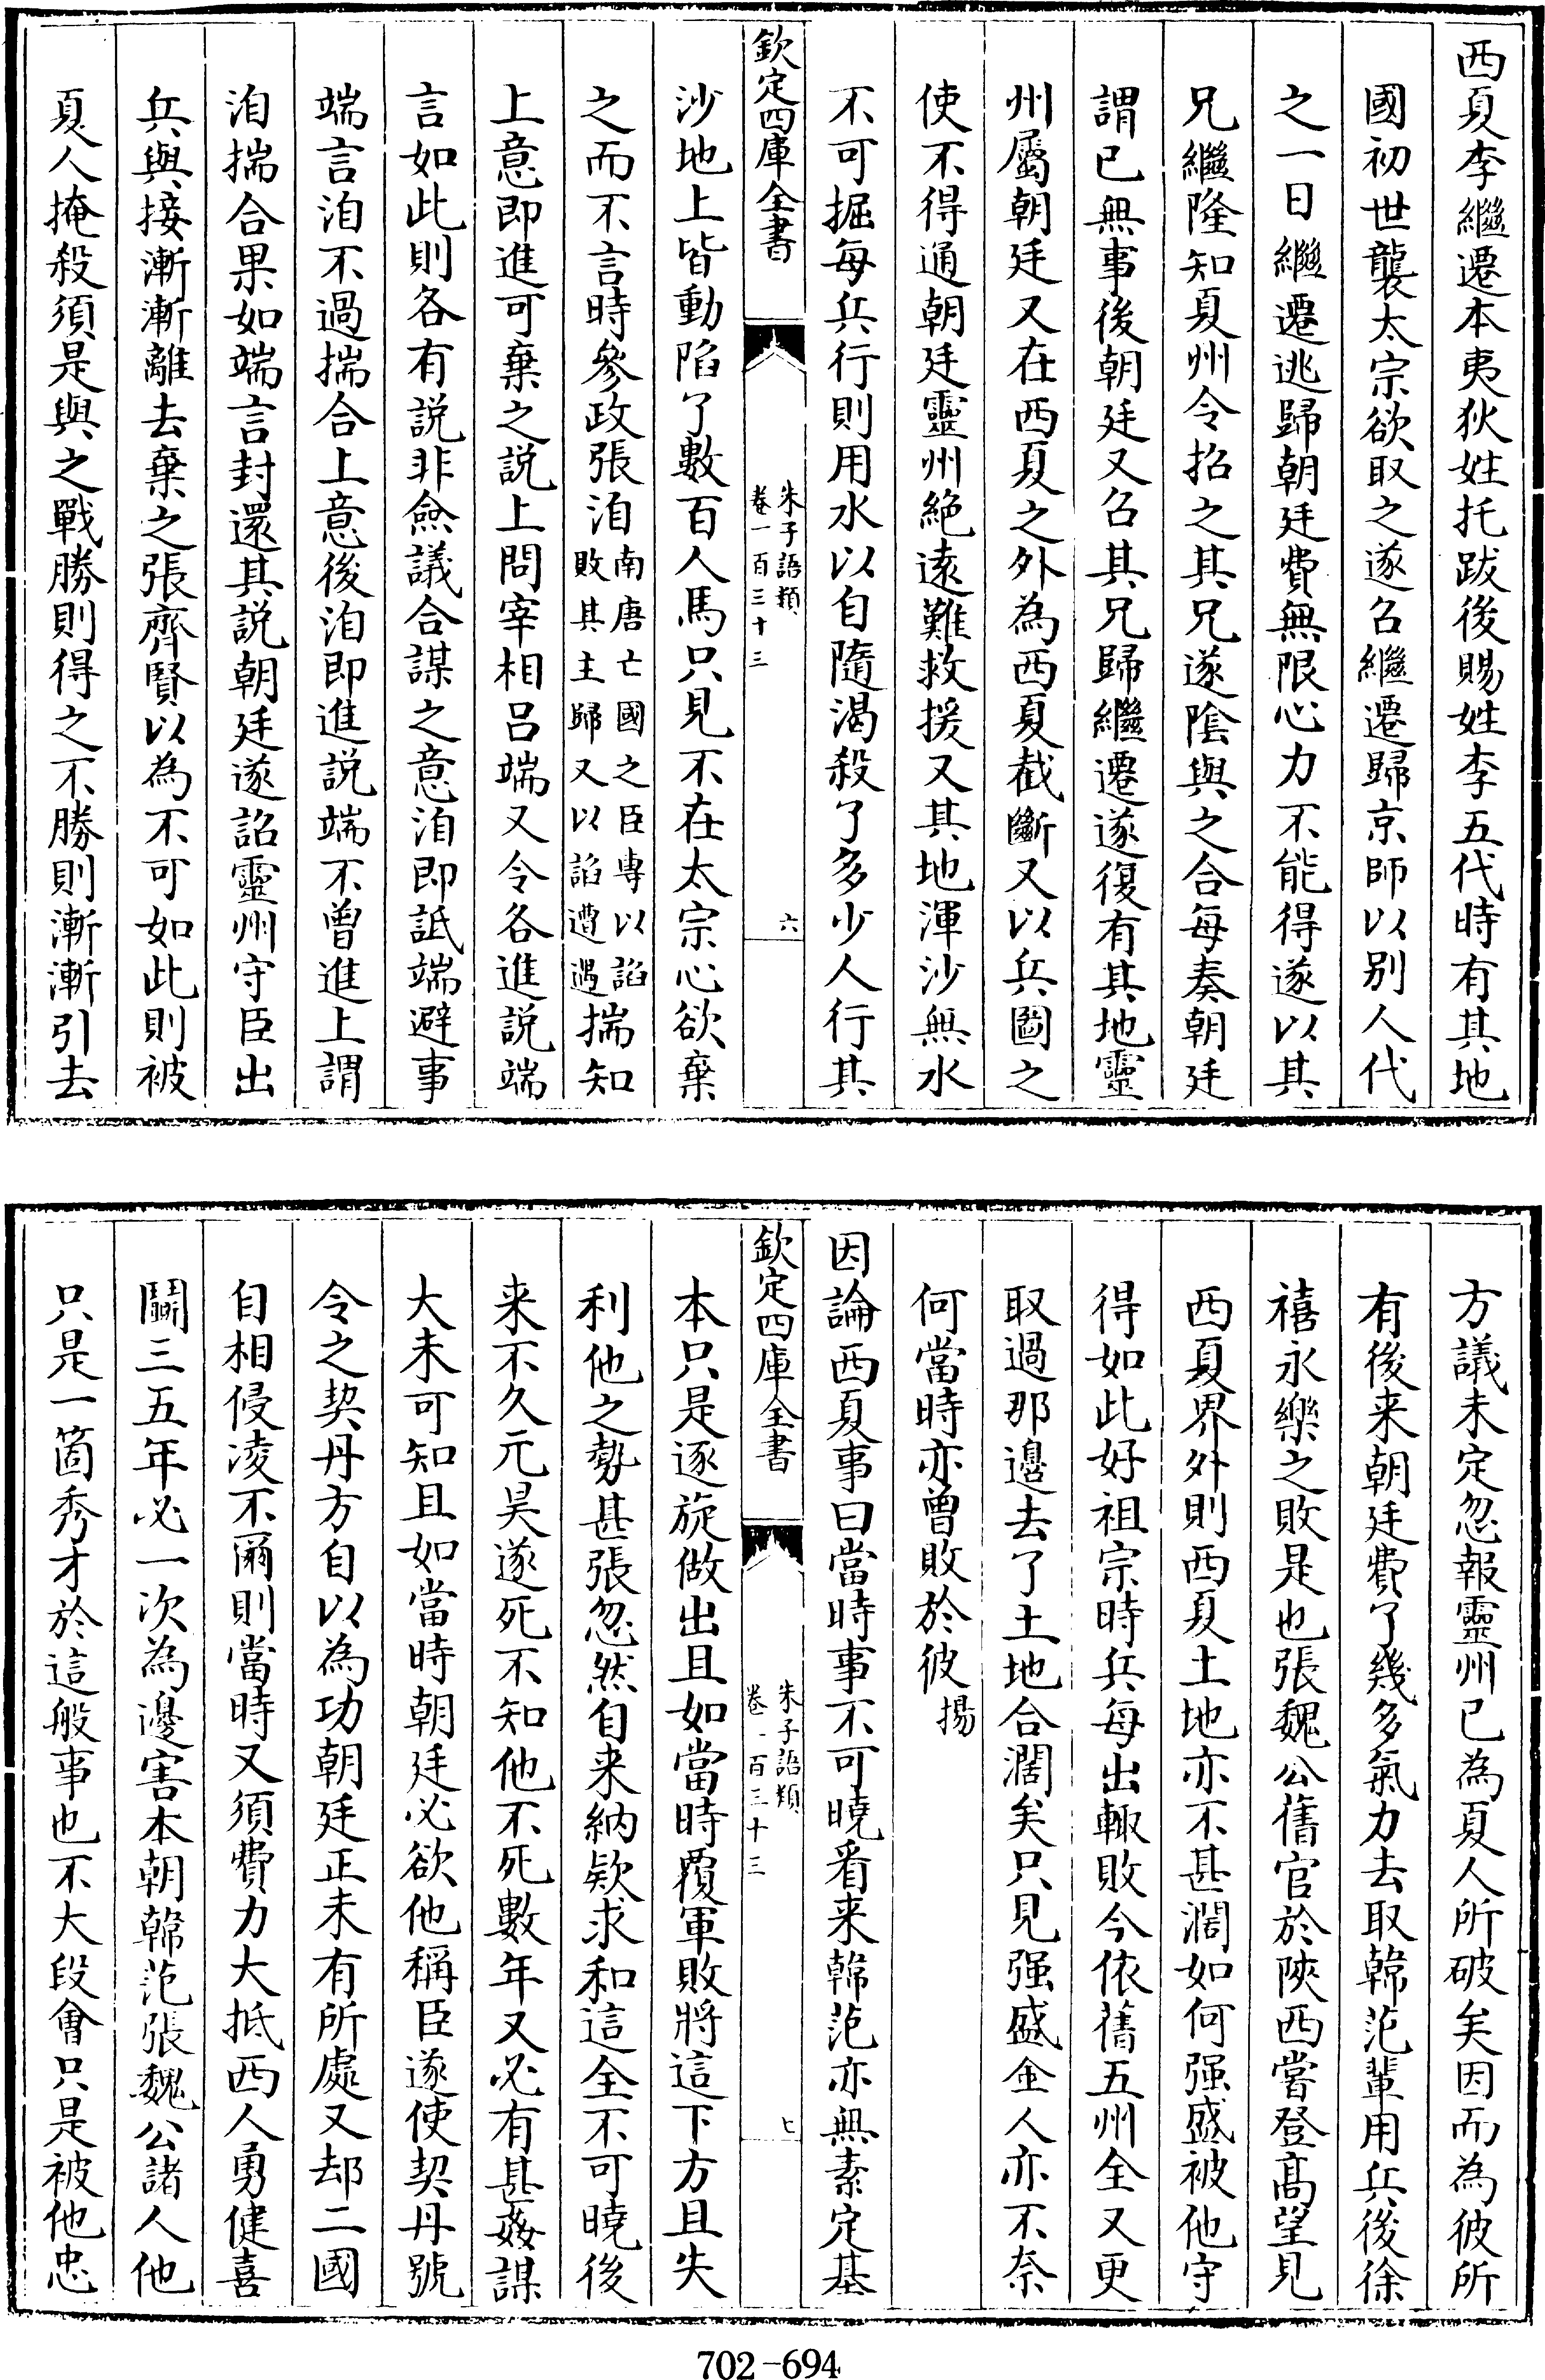 西夏李繼遷本夷狄姓托跋後賜姓李五代時有其地
國初世襲太宗欲取之遂召繼遷歸京師以别人代
之一日繼遷逃歸朝廷費無限心力不能得遂以其
兄繼隆知夏州令招之其兄遂隂與之合每奏朝廷
謂已無事後朝廷又召其兄歸繼遷遂復有其地靈
州屬朝廷又在西夏之外為西夏截斷又以兵圖之
使不得通朝廷靈州絶逺難救援又其地渾沙無水
不可掘每兵行則用水以自隨渇殺了多少人行其
欽定四庫全書
朱子語類
卷一百三十三
六
沙地上皆動陷了數百人馬只見不在太宗心欲棄
之而不言時參政張洎南唐亡國之臣専以諂敗其主歸又以諂遭遇揣知
上意即進可棄之説上問宰相吕端又令各進説端
言如此則各有説非僉議合謀之意洎即詆端避事
端言洎不過揣合上意後洎即進説端不曾進上謂
洎揣合果如端言封還其説朝廷遂詔靈州守臣出
兵與接漸漸離去棄之張齊賢以為不可如此則被
夏人掩殺須是與之戰勝則得之不勝則漸漸引去
方議未定忽報靈州已為夏人所破矣因而為彼所
有後来朝廷費了幾多氣力去取韓范輩用兵後徐
禧永樂之敗是也張魏公舊官於陜西嘗登髙望見
西夏界外則西夏土地亦不甚濶如何强盛被他守
得如此好祖宗時兵每出輙敗今依舊五州全又更
取過那邊去了土地合濶矣只見强盛金人亦不奈
何當時亦曾敗於彼揚
因論西夏事曰當時事不可曉看来韓范亦無素定基
欽定四庫全書
朱子語類
卷一百三十三
七
本只是逐旋做出且如當時覆軍敗將這下方且失
利他之勢甚張忽然自来納欵求和這全不可曉後
来不久元昊遂死不知他不死數年又必有甚姦謀
大未可知且如當時朝廷必欲他稱臣遂使契丹號
令之契丹方自以為功朝廷正未有所處又却二國
自相侵凌不爾則當時又須費力大抵西人勇健喜
鬭三五年必一次為邊害本朝韓范張魏公諸人他
只是一箇秀才於這般事也不大段㑹只是被他忠
702-694